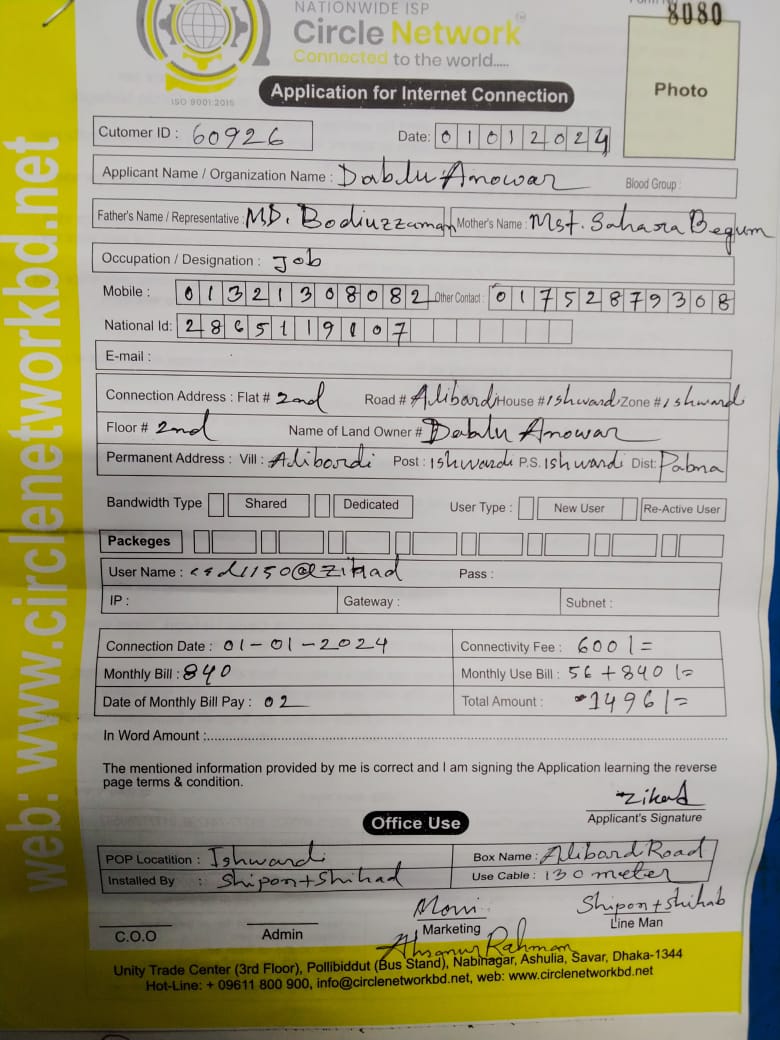 NATIONWIDE ISP
8080
Circle Network
Connected to the world.....
ISO 9001:2015
Application for Internet Connection
Photo
Cutomer ID : 60926
Date: 01012024
Applicant Name / Organization Name : Dablu Anowar Blood Group :
Father's Name / Representative : MD. Bodiuzzaman Mother's Name : Mst. Sahara Begum
Occupation / Designation : Job
Mobile : 01321308082 Other Contact : 01752879308
National Id: 2865119107
E-mail :
Connection Address : Flat # 2nd Road # Alibardi House # Ishwardi Zone # Ishwardi
Floor # 2nd Name of Land Owner # Dablu Anowar
Permanent Address : Vill : Alibordi Post : Ishwardi P.S. Ishwardi Dist: Pabna
Bandwidth Type Shared Dedicated User Type : New User Re-Active User
Packeges
User Name : @zihad Pass :
IP : Gateway : Subnet :
Connection Date : 01-01-2024 Connectivity Fee : 600/=
Monthly Bill : 840 Monthly Use Bill : 56+840/=
Date of Monthly Bill Pay : 02 Total Amount : 1496/=
In Word Amount :
The mentioned information provided by me is correct and I am signing the Application learning the reverse
page terms & condition.
Zihad
Applicant's Signature
Office Use
POP Locatition : Ishwardi Box Name : Alibard Road
Installed By : Shipon+Shihad Use Cable : 130 meter
Shipon+Shihab
C.O.O Admin Marketing Line Man
Ahsanur Rahman
Unity Trade Center (3rd Floor), Pollibiddut (Bus Stand), Nabinagar, Ashulia, Savar, Dhaka-1344
Hot-Line: + 09611 800 900, info@circlenetworkbd.net, web: www.circlenetworkbd.net
web: www.circlenetworkbd.net